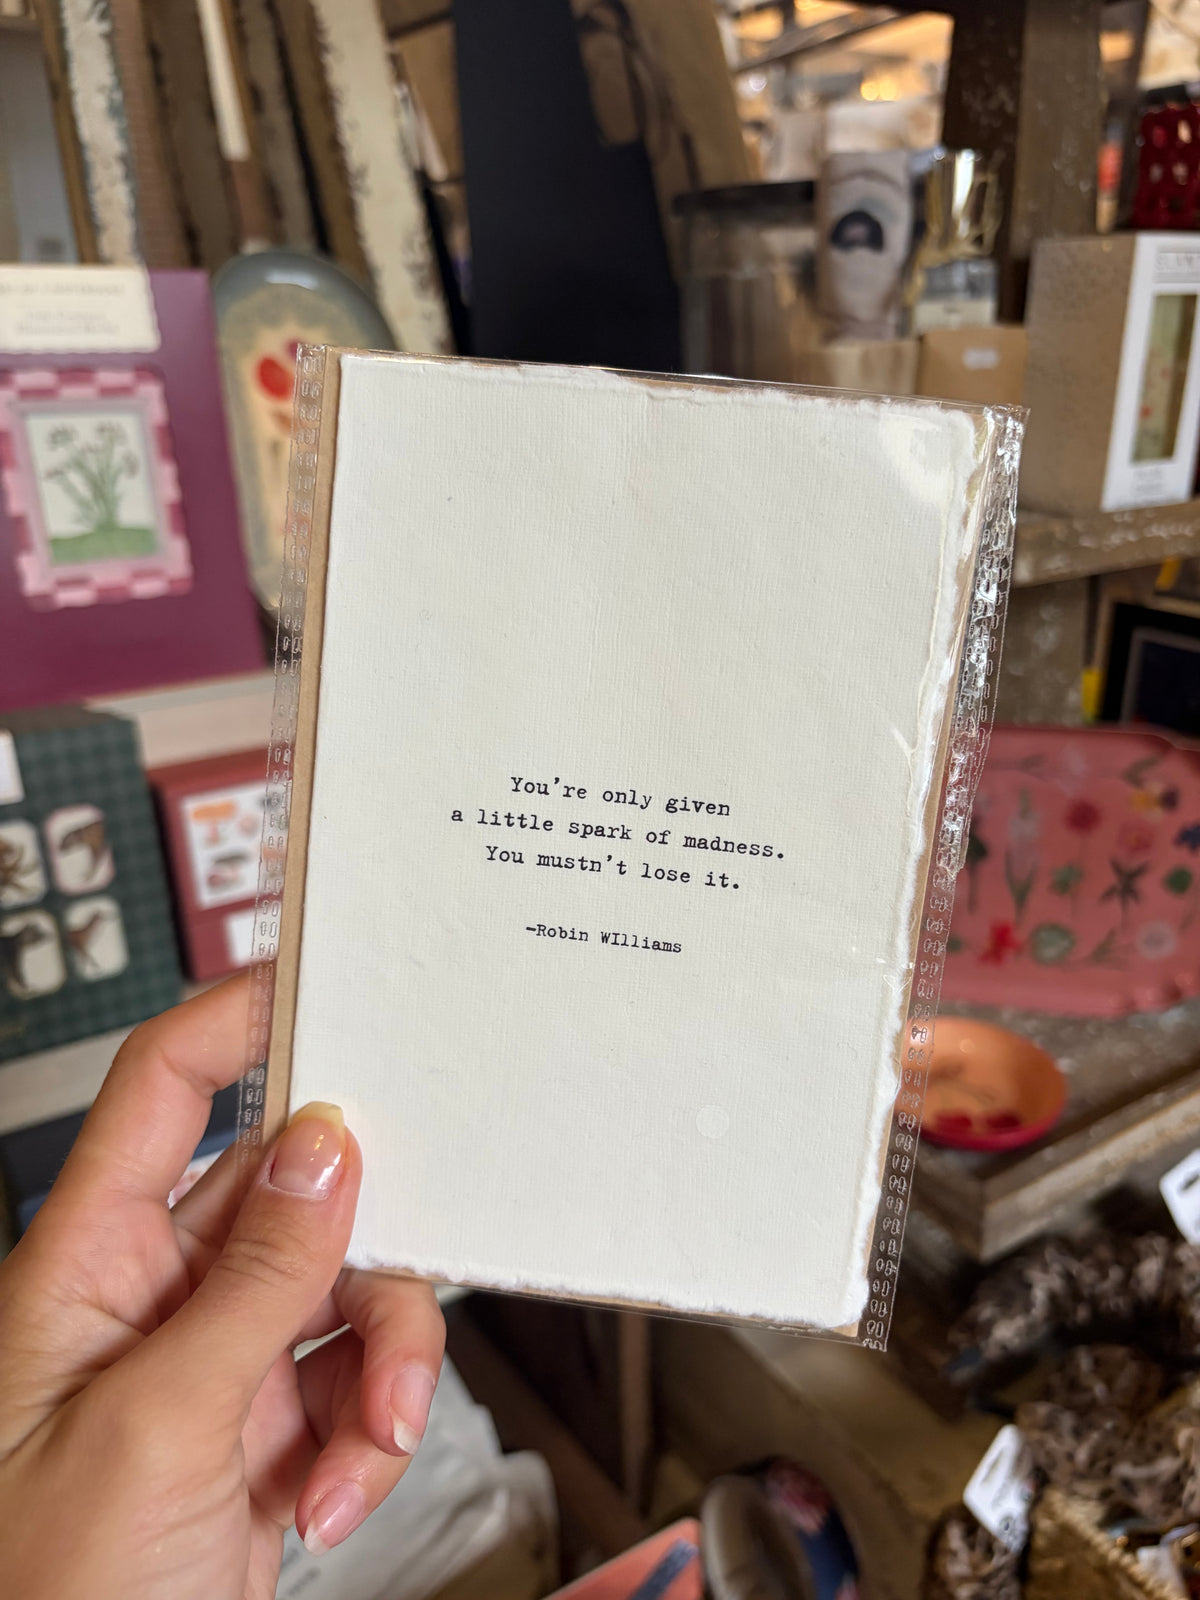 You're only given
a little spark of madness.
You mustn't lose it.
-Robin WIlliams